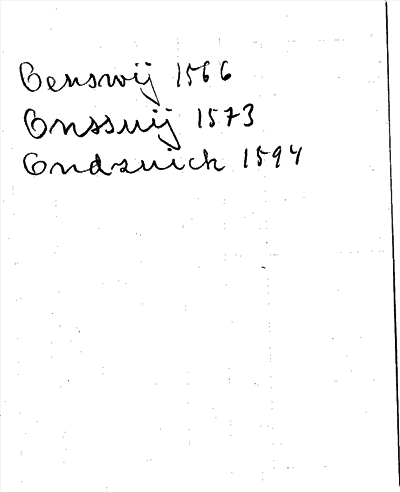 Oenswij 1566
Onssuij 1573
Ondzuich 1594